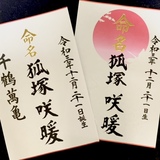 令和六年十二月二十一日誕生
命名
狐塚咲暖
令和六年十二月二十一日誕生
命名
狐塚咲暖
千鶴萬亀